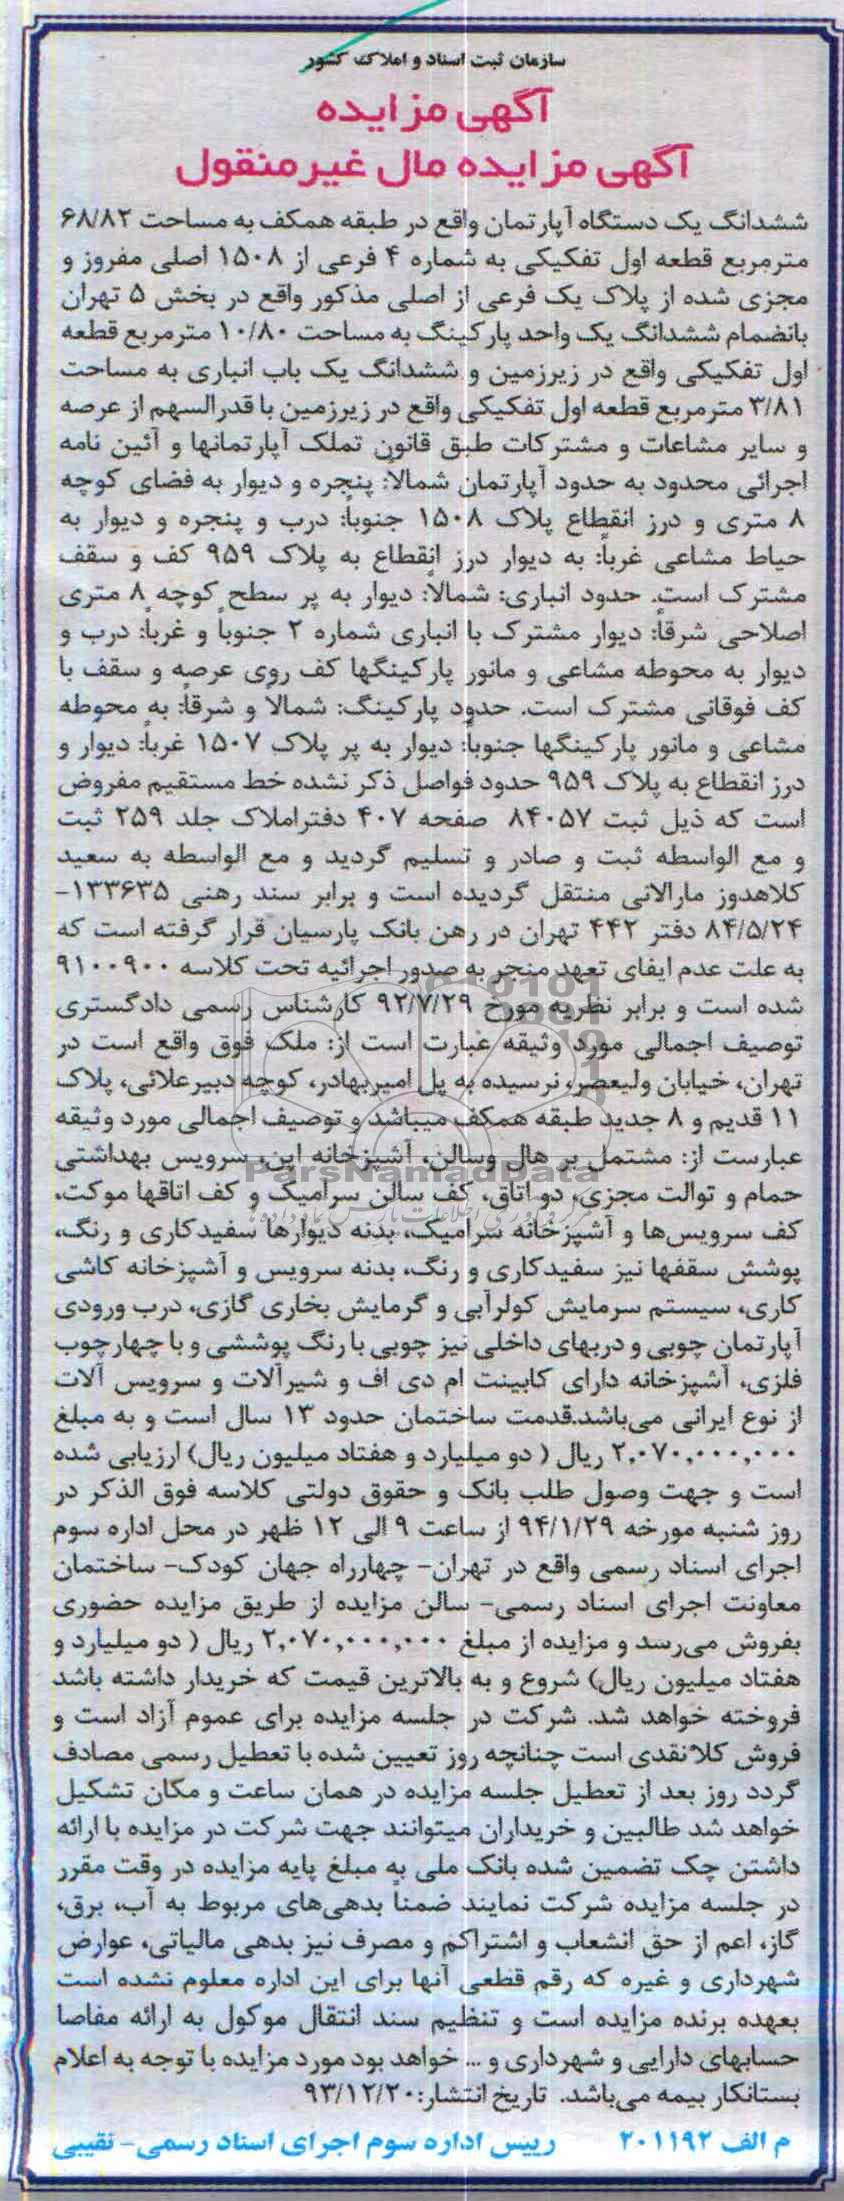 سازمان ثبت اسناد و املاک کشور
آگهی مزایده
آگهی مزایده مال غیرمنقول
ششدانگ یک دستگاه آپارتمان واقع در طبقه همکف به مساحت ۶۸/۸۲
مترمربع قطعه اول تفکیکی به شماره ۴ فرعی از ۱۵۰۸ اصلی مفروز و
مجزی شده از پلاک یک فرعی از اصلی مذکور واقع در بخش ۵ تهران
بانضمام ششدانگ یک واحد پارکینگ به مساحت ۱۰/۸۰ مترمربع قطعه
اول تفکیکی واقع در زیرزمین و ششدانگ یک باب انباری به مساحت
۳/۸۱ مترمربع قطعه اول تفکیکی واقع در زیرزمین با قدرالسهم از عرصه
و سایر مشاعات و مشترکات طبق قانون تملک آپارتمانها و آئین نامه
اجرائی محدود به حدود آپارتمان شمالاً: پنجره و دیوار به فضای کوچه
۸ متری و درز انقطاع پلاک ۱۵۰۸ جنوباً: درب و پنجره و دیوار به
حیاط مشاعی غرباً: به دیوار درز انقطاع به پلاک ۹۵۹ کف و سقف
مشترک است. حدود انباری: شمالاً: دیوار به پر سطح کوچه ۸ متری
اصلاحی شرقاً: دیوار مشترک با انباری شماره ۲ جنوباً و غرباً: درب و
دیوار به محوطه مشاعی و مانور پارکینگها کف روی عرصه و سقف با
کف فوقانی مشترک است. حدود پارکینگ: شمالاً و شرقاً: به محوطه
مشاعی و مانور پارکینگها جنوباً: دیوار به پر پلاک ۱۵۰۷ غرباً: دیوار و
درز انقطاع به پلاک ۹۵۹ حدود فواصل ذکر نشده خط مستقیم مفروض
است که ذیل ثبت ۸۴۰۵۷ صفحه ۴۰۷ دفتراملاک جلد ۲۵۹ ثبت
و مع الواسطه ثبت و صادر و تسلیم گردید و مع الواسطه به سعید
کلاهدوز مارالانی منتقل گردیده است و برابر سند رهنی ۱۳۳۶۳۵-
۸۴/۵/۲۴ دفتر ۴۴۲ تهران در رهن بانک پارسیان قرار گرفته است که
به علت عدم ایفای تعهد منجر به صدور اجرائیه تحت کلاسه ۹۱۰۰۹۰۰
شده است و برابر نظریه مورخ ۹۲/۷/۲۹ کارشناس رسمی دادگستری
توصیف اجمالی مورد وثیقه عبارت است از: ملک فوق واقع است در
تهران، خیابان ولیعصر، نرسیده به پل امیربهادر، کوچه دبیرعلائی، پلاک
۱۱ قدیم و ۸ جدید طبقه همکف میباشد و توصیف اجمالی مورد وثیقه
عبارست از: مشتمل بر هال وسالن، آشپزخانه اپن، سرویس بهداشتی
ParsNamadData
حمام و توالت مجزی، دو اتاق، کف سالن سرامیک و کف اتاقها موکت،
کف سرویس‌ها و آشپزخانه سرامیک، بدنه دیوارها سفیدکاری و رنگ،
پوشش سقفها نیز سفیدکاری و رنگ، بدنه سرویس و آشپزخانه کاشی
کاری، سیستم سرمایش کولرآبی و گرمایش بخاری گازی، درب ورودی
آپارتمان چوبی و دربهای داخلی نیز چوبی با رنگ پوششی و با چهارچوب
فلزی، آشپزخانه دارای کابینت ام دی اف و شیرآلات و سرویس آلات
از نوع ایرانی می‌باشد.قدمت ساختمان حدود ۱۳ سال است و به مبلغ
۲,۰۷۰,۰۰۰,۰۰۰ ریال ( دو میلیارد و هفتاد میلیون ریال) ارزیابی شده
است و جهت وصول طلب بانک و حقوق دولتی کلاسه فوق الذکر در
روز شنبه مورخه ۹۴/۱/۲۹ از ساعت ۹ الی ۱۲ ظهر در محل اداره سوم
اجرای اسناد رسمی واقع در تهران- چهارراه جهان کودک- ساختمان
معاونت اجرای اسناد رسمی- سالن مزایده از طریق مزایده حضوری
بفروش می‌رسد و مزایده از مبلغ ۲,۰۷۰,۰۰۰,۰۰۰ ریال ( دو میلیارد و
هفتاد میلیون ریال) شروع و به بالاترین قیمت که خریدار داشته باشد
فروخته خواهد شد. شرکت در جلسه مزایده برای عموم آزاد است و
فروش کلاً نقدی است چنانچه روز تعیین شده با تعطیل رسمی مصادف
گردد روز بعد از تعطیل جلسه مزایده در همان ساعت و مکان تشکیل
خواهد شد طالبین و خریداران میتوانند جهت شرکت در مزایده با ارائه
داشتن چک تضمین شده بانک ملی به مبلغ پایه مزایده در وقت مقرر
در جلسه مزایده شرکت نمایند ضمناً بدهی‌های مربوط به آب، برق،
گاز، اعم از حق انشعاب و اشتراکم و مصرف نیز بدهی مالیاتی، عوارض
شهرداری و غیره که رقم قطعی آنها برای این اداره معلوم نشده است
بعهده برنده مزایده است و تنظیم سند انتقال موکول به ارائه مفاصا
حسابهای دارایی و شهرداری و ... خواهد بود مورد مزایده با توجه به اعلام
بستانکار بیمه می‌باشد. تاریخ انتشار: ۹۳/۱۲/۲۰
م الف ۲۰۱۱۹۲ رییس اداره سوم اجرای اسناد رسمی- نقیبی